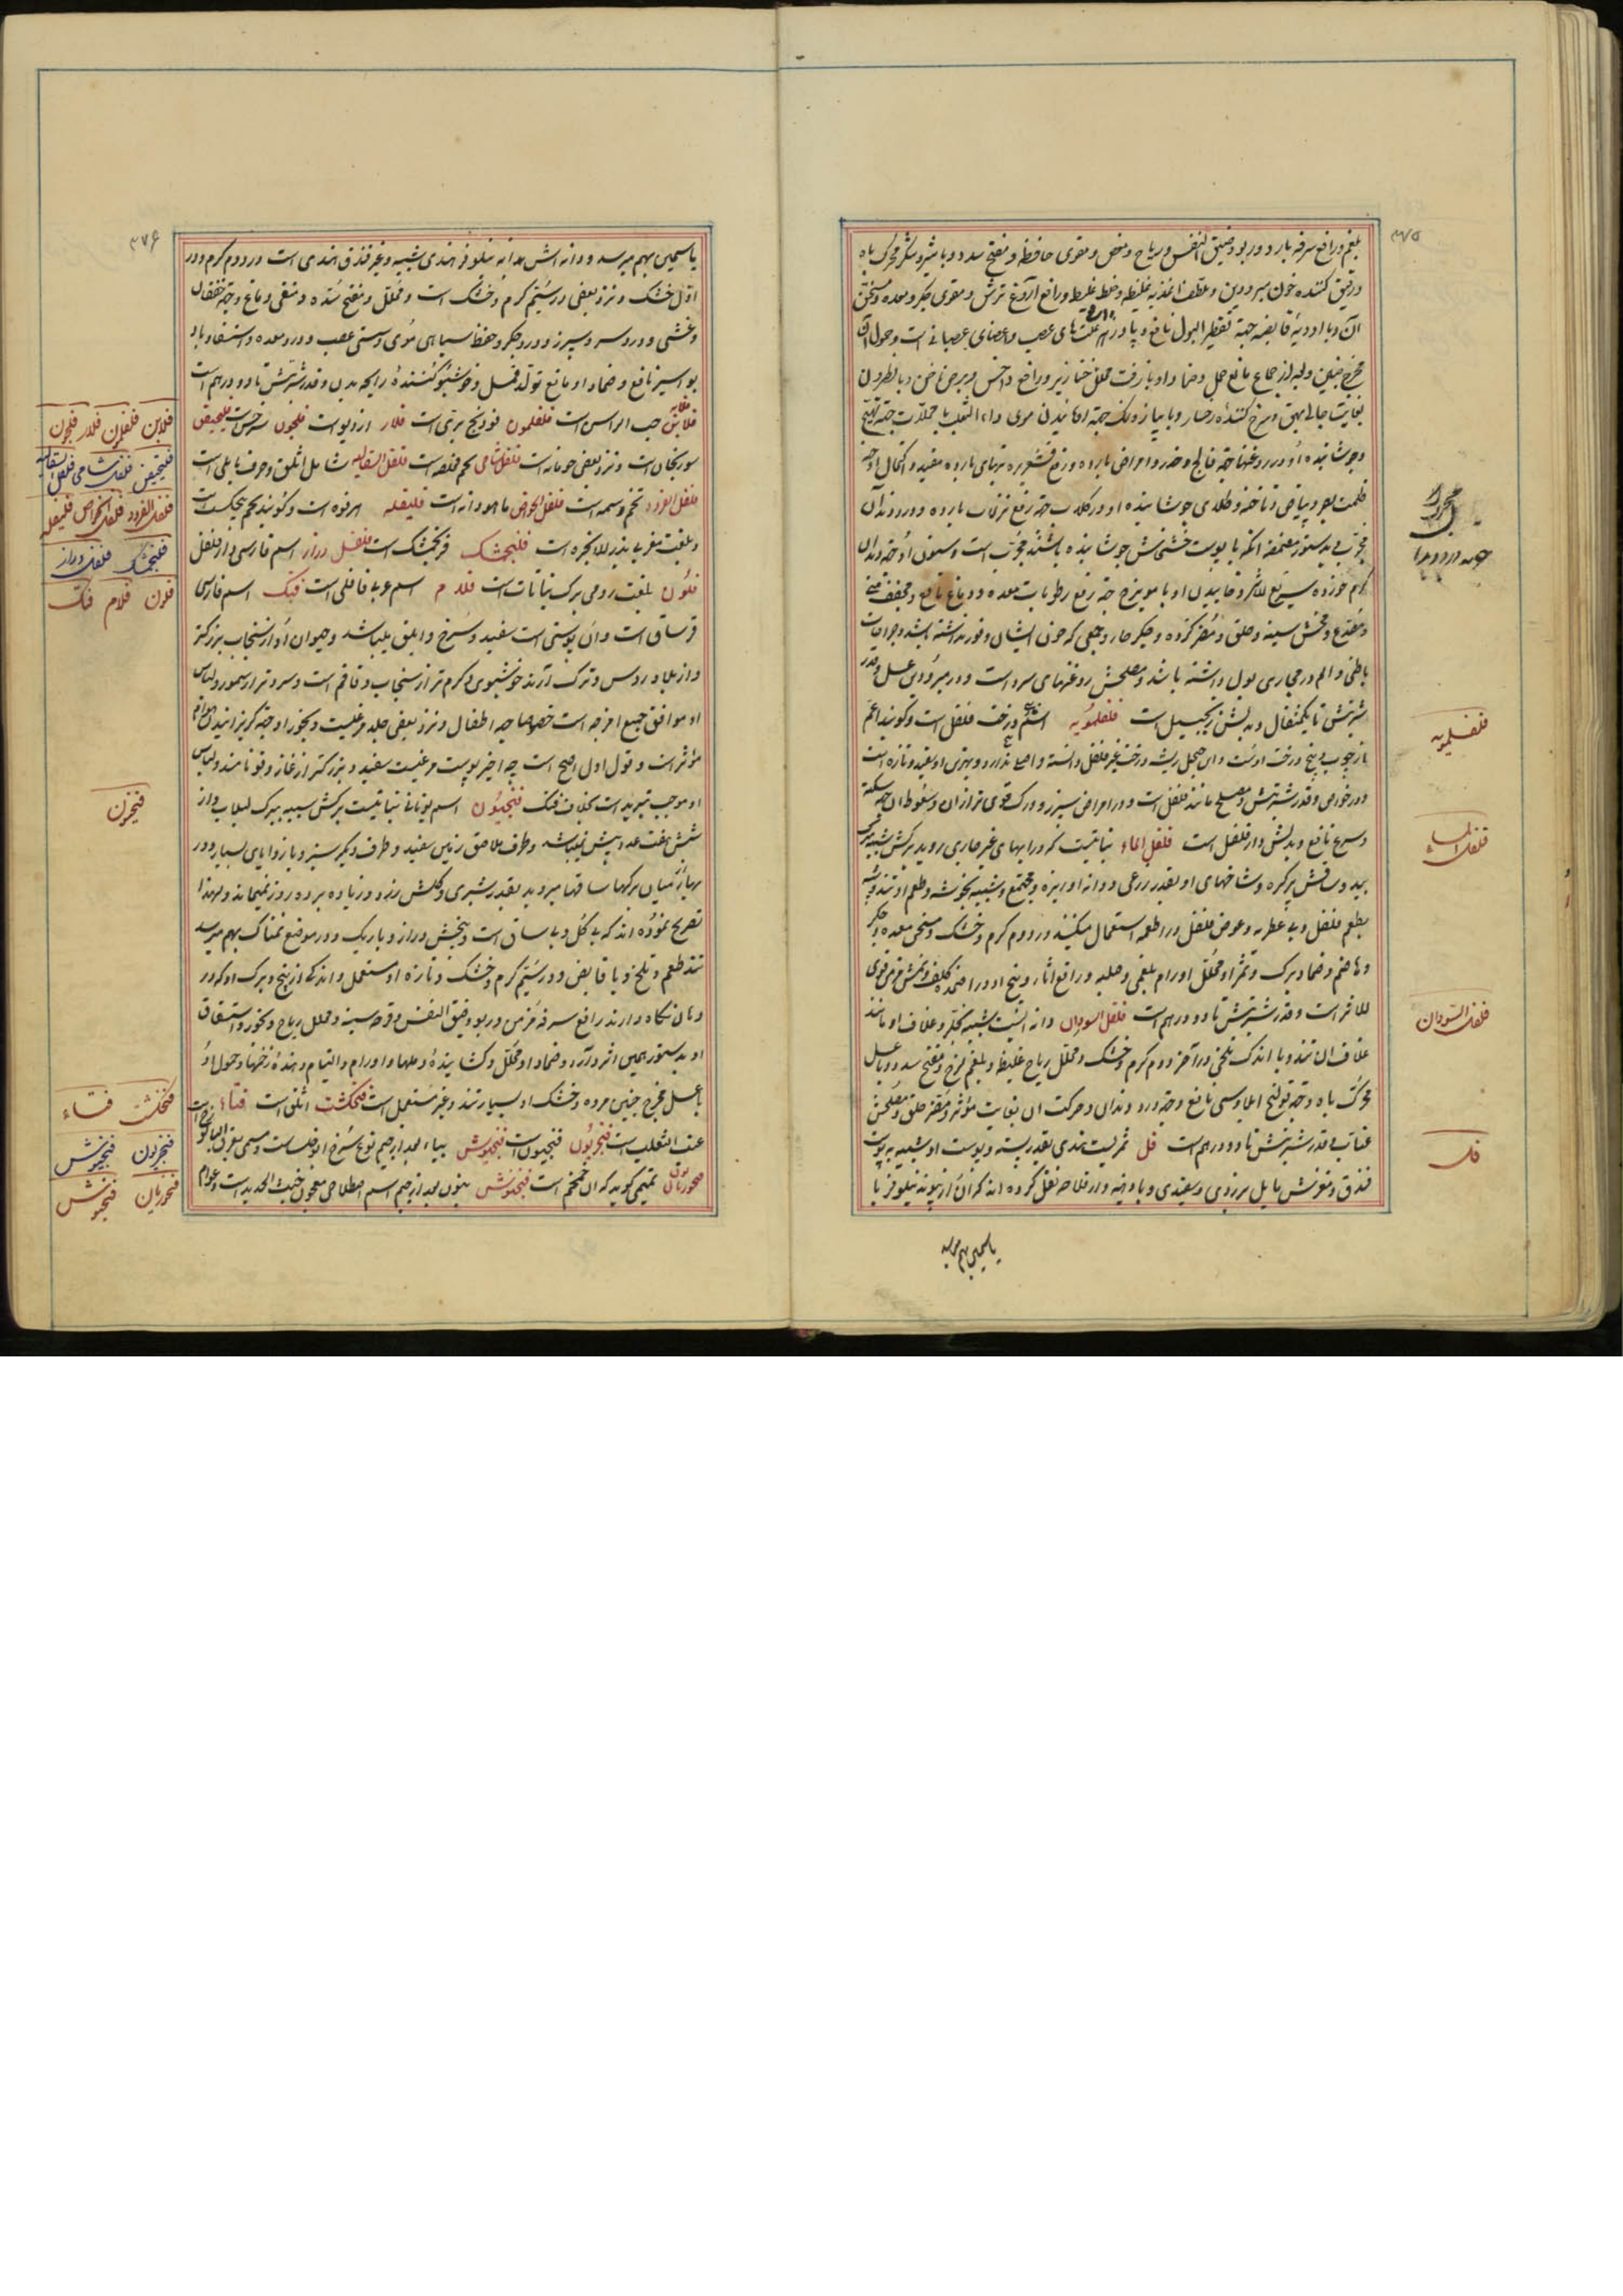 ۳۷۵
بلغم ورافع سرفه بارد و ربو و ضیق النفس و ریاح و مغص و مقوی حافظه و مفتح سدد و با شیر و شکر محرک باه
ورقیق کننده خون مبرودین و ملطف اغذیه غلیظه و خلط غلیظ ورافع آروغ ترش و مقوی جگر و معده و مسخن
آن و با ادویهٔ قابضه جهة تقطیر البول نافع و پادزهر علتهای عصب و اعضای عصبانی است و حمول آن
مخرج جنین و بعد از جماع مانع حمل و ضماد او با زفت محلل خنازیر ورافع داحس و برص و با نطرون
بغایت جالی بهق و سرخ کننده رخسار و با پیاز و نمک جهة رویانیدن موی داء الثعلب
وجوشانیده او در روغنها جهة فالج و خدر و امراض بارده و رفع قشعریره تبهای بارده مفید و اکتحال او جهة
ظلمت بصر و بیاض و ناخنه و طلای جوشانیده او در گلاب جهة رفع نزلات بارده و درد دندان
مجرب و بدستور مضمضه آنکه با پوست خشخاش جوشانیده باشند مجرب است و سنون او جهة دندان
کرم خورده سریع الاثر و خاییدن او با مویزج جهة رفع رطوبات معده و دماغ نافع و مجفف منی
و مصدع و مخشن سینه و حلق و مضر گرده و جگر حار و جمعی که خون ایشان وفور نداشته باشد و جراحات
باطنی و الم در مجاری بول داشته باشند و مصلحش روغنهای سرد است و در مبرودی عسل و قدر
شربتش تا یکمثقال و بدلش زنجبیل است فلفلمویه اسم درخت فلفل است و گویند اعم
از چوب و بیخ درخت اوست و ابن جمیل ریشه درخت غیر فلفل دانسته و اصلی ندارد و بهترین او سفید و تازه است
و در خواص و قدر شربتش و مصلح مانند فلفل است و در امراض سپرز و ورک قوی تر از آن و سعوط آن جهة سکته
و صرع نافع و بدلش دار فلفل است فلفل الماء نباتیست که در آبهای غیر جاری روید برگش شبیه ببرگ
بید و ساقش پرگره و شاخهای او بقدر ذرعی و دانه او ریزه و مجتمع و شبیه بخوشه و طعم او تند و شبیه
بطعم فلفل و بی عطریه و عوض فلفل در اطعمه استعمال میکنند در دوم گرم و خشک و مسخن معده و جگر
و هاضم و ضماد برگ و ثمر او محلل اورام بلغمی و صلبه ورافع آثار و بیخ او در ازالهٔ کلف و نمش قوی
الاثر است و قدر شربتش تا دو درهم است فلفل السودان دانه ایست شبیه بجلبان و غلاف او مانند
غلاف آن تند و با اندک تلخی در آخر دوم گرم و خشک و محلل ریاح غلیظه و بلغم لزج و مفتح سدد و با عسل
محرک باه و جهة قولنج ایلاوسی نافع و جهة درد دندان و حرکت آن بغایت مؤثر و مضر حلق و مصلحش
عناب و قدر شربتش تا دو درهم است فل ثمریست هندی بقدر پسته و پوست او شبیه به پوست
فندق و مغزش مایل بزردی و سفیدی و با دهنیه و از فلاحه نقل کرده اند که آن از پیوند نیلوفر با
یاسمین بهم میرسد
مجرب
فلفلمویه
فلفل الماء
فلفل السودان
فل
۳۷۶
یاسمین بهم میرسد و دانه اش مدانه نیلوفر هندی شبیه و غیر فندق هندی است در دوم گرم و در
اول خشک و نزد بعضی در سیم گرم و خشک است و محلل و مفتح سده و منقی دماغ و جهة خفقان
و غشی و درد سر و سپرز و درد جگر و حفظ سیاهی موی و سستی عصب و درد معده و استسقا و باد
بواسیر نافع و ضماد او مانع تولد قمل و خوشبو کنندهٔ رایحه بدن و قدر شربتش تا دو درهم است
فلابن حب الراسن است فلفلمون فودنج بری است فلار ازدیو است فلجون سرخس است فلیحیقن
سورنجان است و نزد بعضی حومانه است فلفل شامی تخم فلفله است فلفل الصقالبه شامل اثلق و حرف بابلی است
فلفل القرود تخم وسمه است فلفل الخواص ماهودانه است فلیفله هرنوه است و گویند تخم پنجنگشت است
و بلغت مغربی بذر الانجره است فلنجمشک فرنجمشک است فلفل دراز اسم فارسی دار فلفل
فلون بلغت رومی برگ نباتات است فلام اسم عربی قاقلی است فنک اسم فارسی
قرساق است و آن پوستی است سفید و سرخ و ابلق میباشد و حیوان او از سنجاب بزرگتر
و از بلاد روس و ترک آرند خوشبوی و گرم تر از سنجاب و قاقم است و سردتر از سمور و لباس
او موافق جمیع امزجه است خصوصا جهة اطفال و نزد بعضی جلد مرغیست و بخور او جهة گریزانیدن هوام
مؤثر است و قول اول اصح است چه اخیر پوست مرغیست سفید و بزرگتر از غاز و قو نامند و لباس
او موجب تبرید است بخلاف فنک فنجیون اسم یونانی نباتیست برگش شبیه ببرگ لبلاب و از
شش هفت عدد بیش نمیباشد و طرف ملاصق زمین سفید و طرف دیگر سبز و با زوایای بسیار و در
بهار از میان برگها ساقها میروید بقدر شبری و گلش زرد و زیاده بر ده روز نمیماند و لهذا
تصریح نموده اند که بی گل و بی ساق است و بیخش دراز و باریک و در موضع نمناک بهم میرسد
تند طعم و تلخ و با قابض و در سیم گرم و خشک و تازه او مستعمل و اندکی از بیخ و برگ او که در
دهان نگاه دارند رافع سرفه مزمن و ربو و ضیق النفس و قرحه سینه و محلل ریاح و بخور و استنشاق
او بدستور همین اثر دارد و ضماد او محلل و گشایندهٔ دملها و اورام و التیام دهندهٔ زخمها و حمول او
با عسل مخرج جنین مرده و خشک او بسیار تند و غیر مستعمل است فنجنکشت اثلق است فناء
عنب الثعلب است فنجریون فنجیون است فنجیوش
تمیمی گوید که آن تخمخم است فنجنوش بنون بعد از جیم اسم اصطلاحی معجون خبث الحدید است و عوام
فلابن فلفلمون فلار فلجون
فلیحیقن فلفل شامی فلفل الصقالبه
فلفل القرود فلفل الخواص فلیفله
فلنجمشک فلفل دراز
فلون فلام فنک
فنجیون
فنجنکشت فناء
فنجریون فنجیوش
فنجوریان فنجنوش